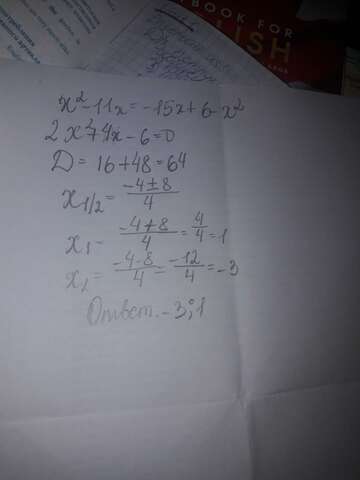 BOOK FOR
ENGLISH
x² - 11x = -15x + 6 - x²
2x² + 4x - 6 = 0
D = 16 + 48 = 64
x1/2 = -4 ± 8 / 4
x1 = -4 + 8 / 4 = 4 / 4 = 1
x2 = -4 - 8 / 4 = -12 / 4 = -3
Ответ. -3; 1